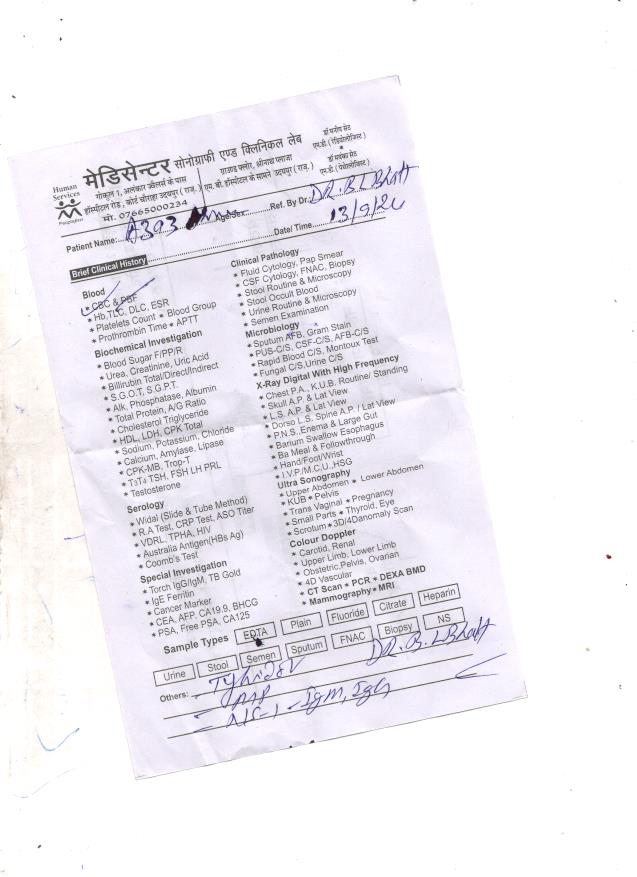 Human
Services
मेडिसेन्टर सोनोग्राफी एण्ड क्लिनिकल लेब
गोकुल 1, अलंकार ज्वेलर्स के पास
हॉस्पीटल रोड, कोर्ट चौराहा उदयपुर (राज.)
मो. 07665000234
ग्राउण्ड फ्लोर, श्रीनाथ प्लाजा
एम. बी. हॉस्पीटल के सामने उदयपुर (राज.)
एम.डी. (रेडियोलोजिस्ट)
एम.डी. (पेथोलोजिस्ट)
Patient Name: A393 Age/Sex Ref. By Dr.: DR. B L Bhatt
Date/ Time
Brief Clinical History
Blood
* CBC & PBF
* Hb, TLC, DLC, ESR
* Platelets Count * Blood Group
* Prothrombin Time * APTT
Biochemical Investigation
* Blood Sugar F/PP/R
* Urea, Creatinine, Uric Acid
* Billirubin Total/Direct/Indirect
* S.G.O.T, S.G.P.T.
* Alk. Phosphatase, Albumin
* Total Protein, A/G Ratio
* Cholesterol Triglyceride
* HDL, LDH, CPK Total
* Sodium, Potassium, Chloride
* Calcium, Amylase, Lipase
* CPK-MB, Trop-T
* T3T4 TSH, FSH LH PRL
* Testosterone
Serology
* Widal (Slide & Tube Method)
* R.A Test, CRP Test, ASO Titer
* VDRL, TPHA, HIV
* Australia Antigen(HBs Ag)
* Coomb's Test
Special Investigation
* Torch IgG/IgM, TB Gold
* IgE Ferritin
* Cancer Marker
* CEA, AFP, CA19.9, BHCG
* PSA, Free PSA, CA125
Clinical Pathology
* Fluid Cytology, Pap Smear
* CSF Cytology, FNAC, Biopsy
* Stool Routine & Microscopy
* Stool Occult Blood
* Urine Routine & Microscopy
* Semen Examination
Microbiology
* Sputum AFB, Gram Stain
* PUS-C/S, CSF-C/S, AFB-C/S
* Rapid Blood C/S, Montoux Test
* Fungal C/S,Urine C/S
X-Ray Digital With High Frequency
* Chest P.A., K.U.B. Routine/ Standing
* Skull A.P & Lat View
* L.S. A.P. & Lat View
* Dorso L.S. Spine A.P. / Lat View
* P.N.S. Enema & Large Gut
* Barium Swallow Esophagus
* Ba Meal & Followthrough
* Hand/Foot/Wrist
* I.V.P/M.C.U.,HSG
Ultra Sonography
* Upper Abdomen * Lower Abdomen
* KUB * Pelvis
* Trans Vaginal * Pregnancy
* Small Parts * Thyroid, Eye
* Scrotum * 3D/4Danomaly Scan
Colour Doppler
* Carotid, Renal
* Upper Limb, Lower Limb
* Obstetric,Pelvis, Ovarian
* 4D Vascular
* CT Scan * PCR * DEXA BMD
* Mammography * MRI
Sample Types EDTA Plain Fluoride Citrate Heparin
Urine Stool Semen Sputum FNAC Biopsy NS
Others: DR. B. L Bhatt
IgM, IgG